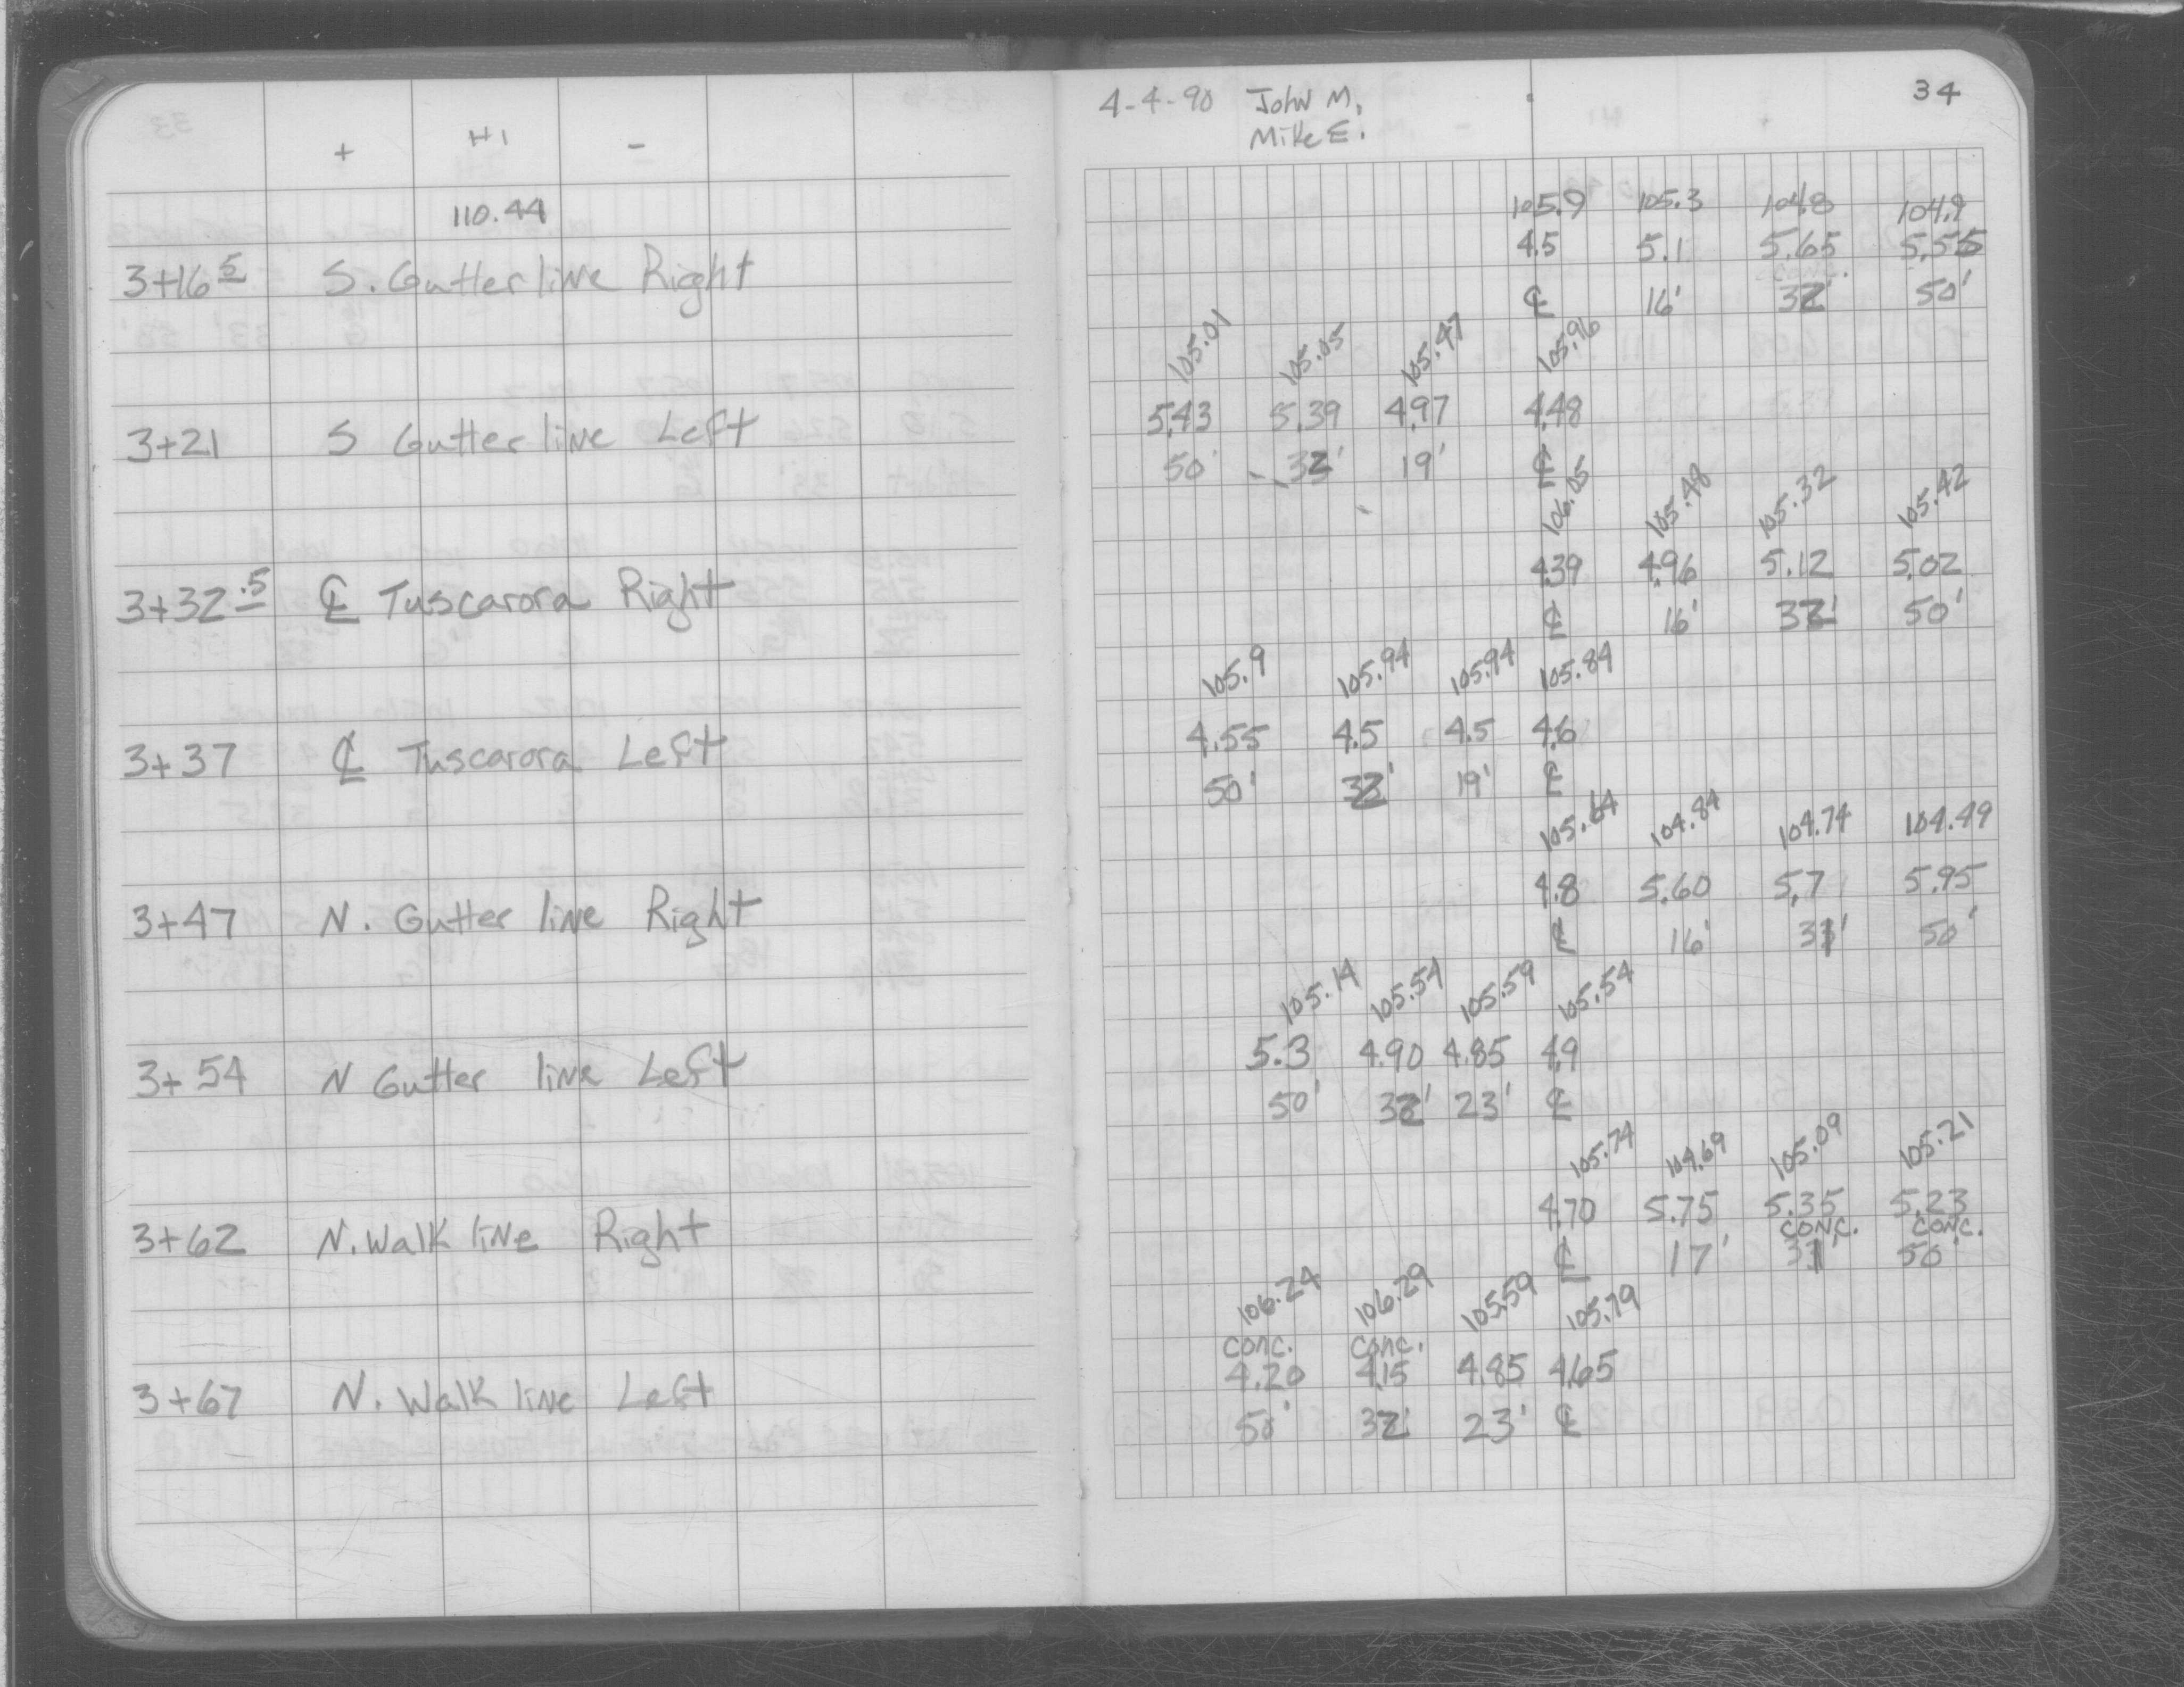 + HI -
110.44
3+16 5 S. Gutter line Right
3+21 S Gutter line Left
3+32 .5 ℄ Tuscarora Right
3+37 ℄ Tuscarora Left
3+47 N. Gutter line Right
3+54 N Gutter line Left
3+62 N. Walk line Right
3+67 N. Walk line Left
4-4-90 John M. 34
Mike E.
105.9 105.3 104.8 104.9
4.5 5.1 5.65 5.55
℄ 16' 32' 50'
105.01 105.05 105.47 105.96
5.43 5.39 4.97 4.48
50' 32' 19' ℄
106.05 105.48 105.32 105.42
4.39 4.96 5.12 5.02
℄ 16' 32' 50'
105.9 105.94 105.94 105.84
4.55 4.5 4.5 4.6
50' 32' 19' ℄
105.64 104.84 104.74 104.49
4.8 5.60 5.7 5.95
℄ 16' 31' 50'
105.14 105.54 105.59 105.54
5.3 4.90 4.85 4.9
50' 32' 23' ℄
105.74 104.69 105.09 105.21
4.70 5.75 5.35 5.23
conc. conc.
℄ 17' 31' 50'
106.24 106.29 105.59 105.79
conc. conc.
4.20 4.15 4.85 4.65
50' 32' 23' ℄